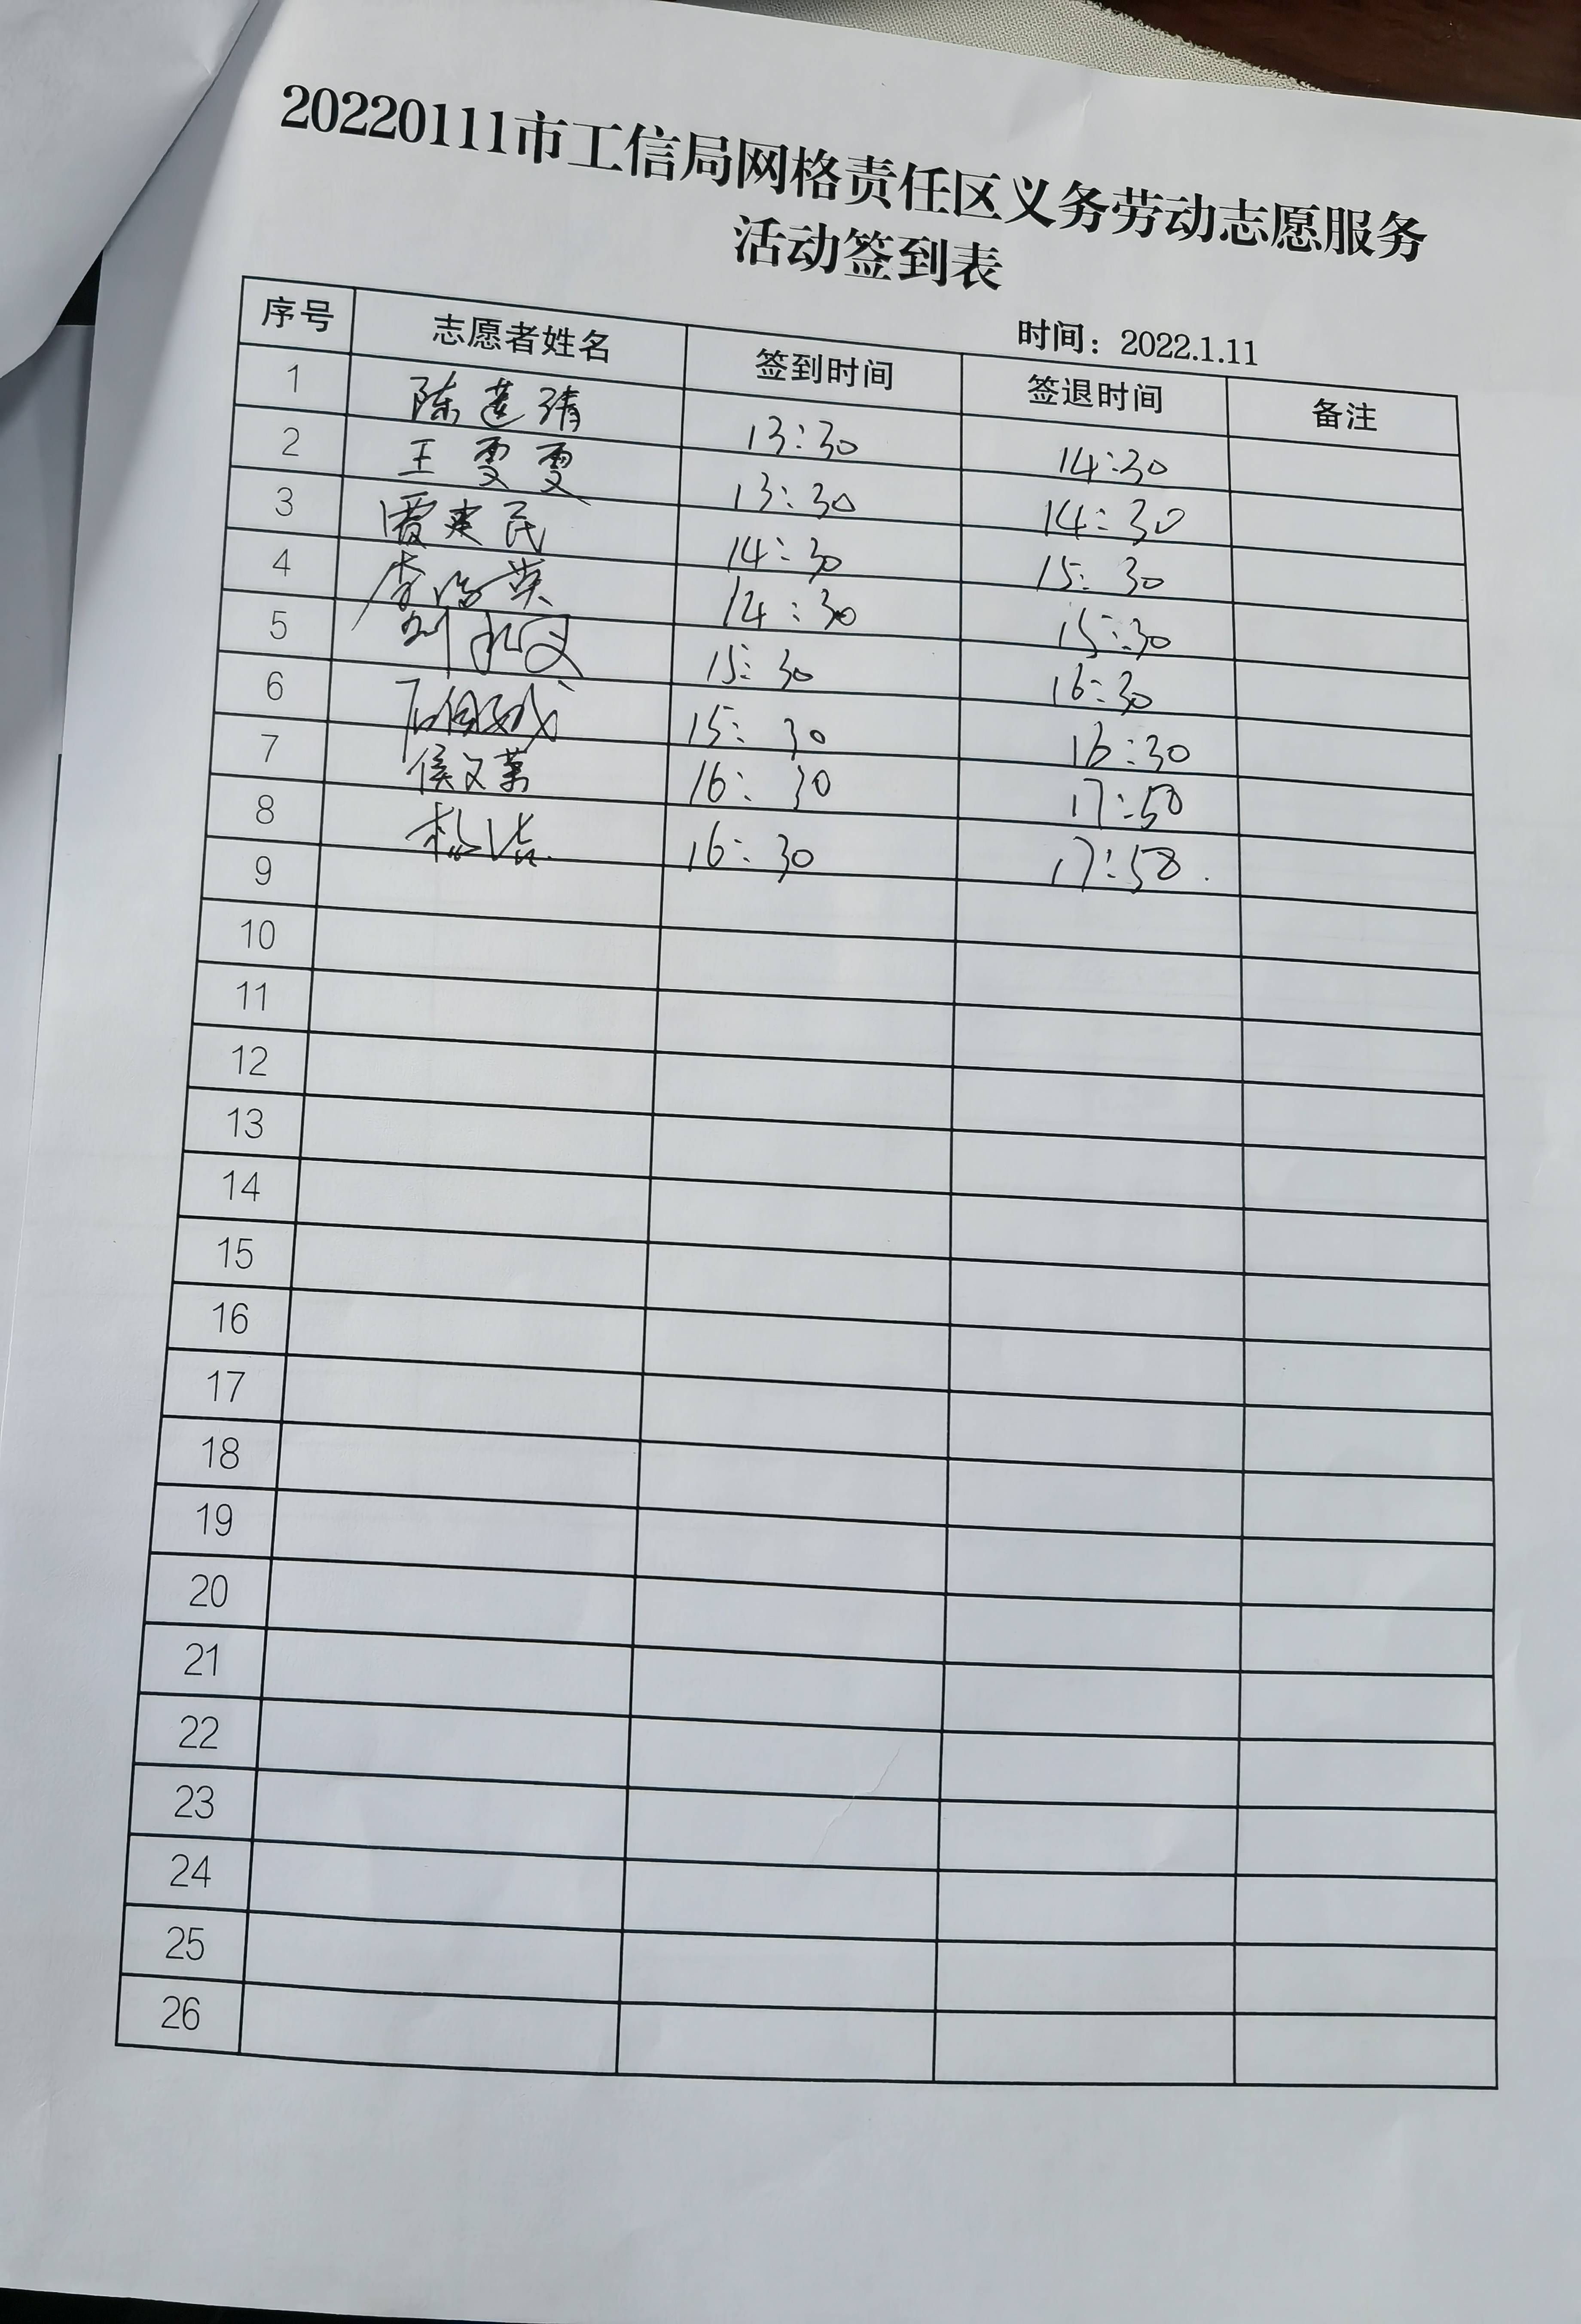 20220111市工信局网格责任区义务劳动志愿服务
活动签到表
时间：2022.1.11
序号 志愿者姓名 签到时间 签退时间 备注
1 陈莲靖 13:30 14:30
2 王雯雯 13:30 14:30
3 贾建民 14:30 15:30
4 李 英 14:30 15:30
5 刘 文 15:30 16:30
6 15:30 16:30
7 侯文 16:30 17:50
8 杨洁 16:30 17:50
9
10
11
12
13
14
15
16
17
18
19
20
21
22
23
24
25
26